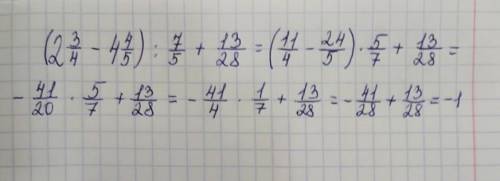 (2 3/4 - 4 4/5) : 7/5 + 13/28 = (11/4 - 24/5) · 5/7 + 13/28 =
- 41/20 · 5/7 + 13/28 = - 41/4 · 1/7 + 13/28 = - 41/28 + 13/28 = -1